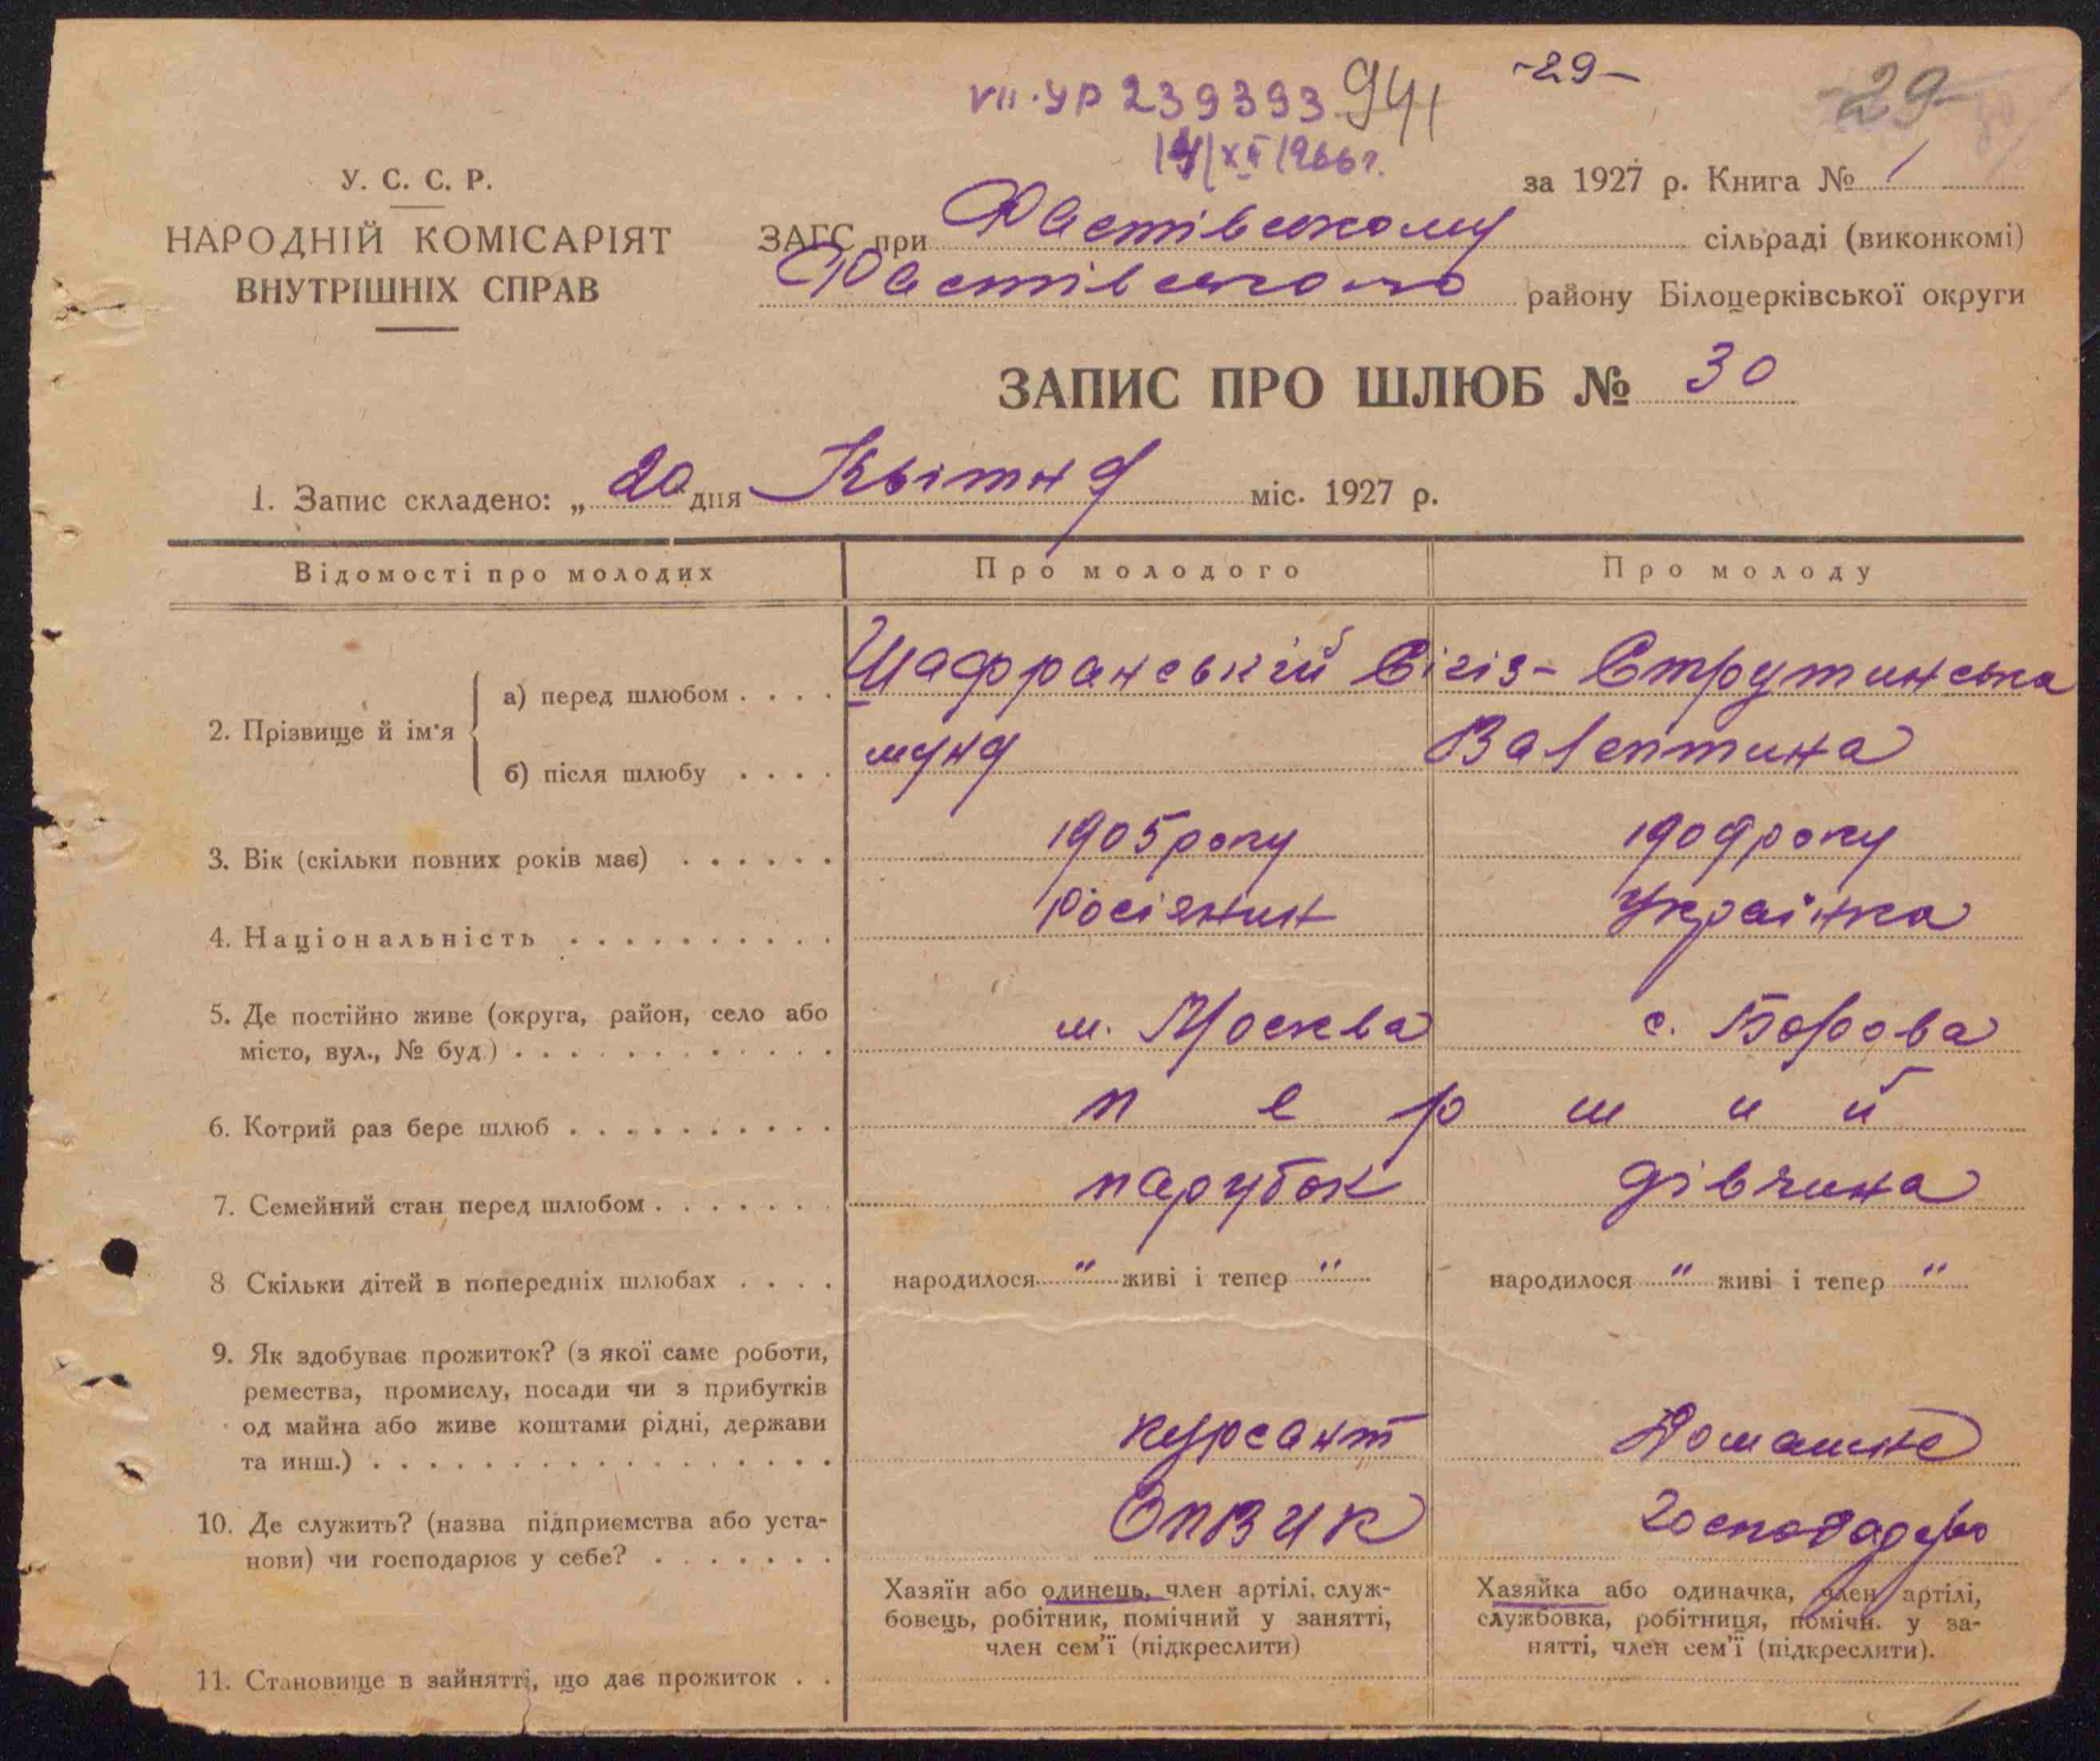 -29-
-29-
VII·УР 239393 941
14/XII 1966г.
У. С. С. Р.
НАРОДНІЙ КОМІСАРІЯТ
ВНУТРІШНІХ СПРАВ
за 1927 р. Книга № 1
ЗАГС при Фастівському сільраді (виконкомі)
Фастівського району Білоцерківської округи
ЗАПИС ПРО ШЛЮБ № 30
1. Запис складено: „20" дня Квітня міс. 1927 р.
Відомості про молодих Про молодого Про молоду
2. Прізвище й ім'я
а) перед шлюбом . . . . Шафранський Сігіз- Струтинська
б) після шлюбу . . . . мунд Валентина
3. Вік (скільки повних років має) . . . . . . 1905 року 1909 року
4. Національність . . . . . . . . . . Росіянин Українка
5. Де постійно живе (округа, район, село або
місто, вул., № буд.) . . . . . . . . . . . . м. Москва с. Борова
6. Котрий раз бере шлюб . . . . . . . . . . п е р ш и й
7. Семейний стан перед шлюбом . . . . . . . парубок дівчина
8 Скільки дітей в попередніх шлюбах . . . . народилося " живі і тепер " народилося " живі і тепер "
9. Як здобуває прожиток? (з якої саме роботи,
ремества, промислу, посади чи з прибутків
од майна або живе коштами рідні, держави
та инш.) . . . . . . . . . . . . . . . . . курсант Домашнє
10. Де служить? (назва підприємства або уста-
нови) чи господарює у себе? . . . . . . . господарство
Хазяїн або одинець, член артілі, служ-
бовець, робітник, помічний у занятті,
член сем'ї (підкреслити)
Хазяйка або одиначка, член артілі,
службовка, робітниця, помічн. у за-
нятті, член сем'ї (підкреслити).
11. Становище в зайнятті, що дає прожиток . .